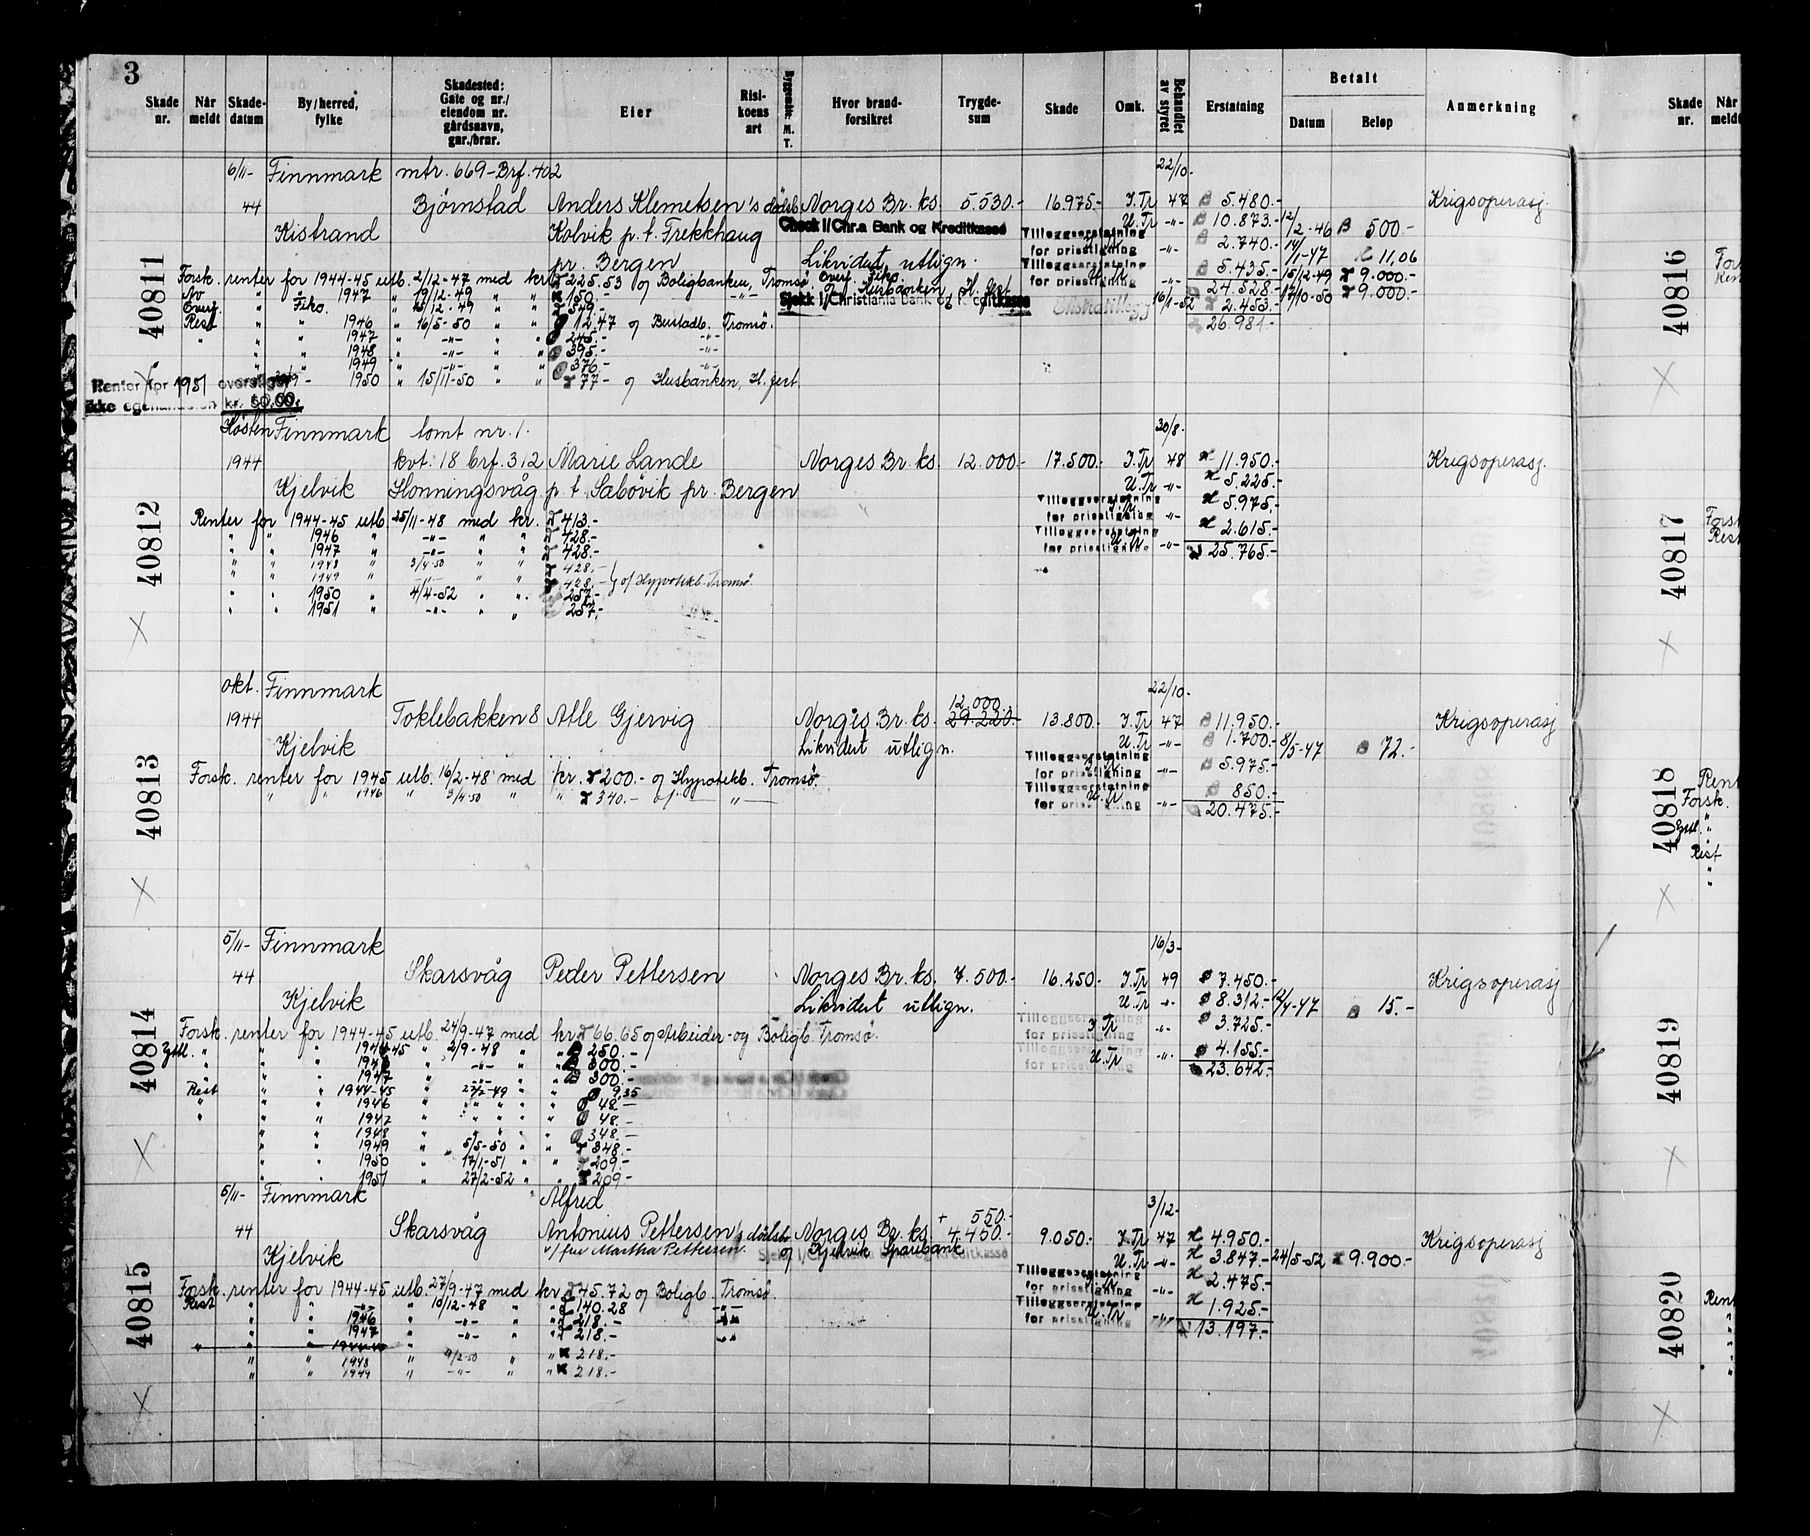 3
Skade nr. | Når meldt | Skade-datum | By/herred, fylke | Skadested: Gate og nr./ eiendom nr. gårdsnavn, gnr./brnr. | Eier | Risi-koens art | Byggemåte M. T. | Hvor brand-forsikret | Trygde-sum | Skade | Omk. | Behandlet av styret | Erstatning | Betalt Datum | Beløp | Anmerkning
40811
6/11- Finnmark mtr. 669-Brf. 402 22/10-
44 Bjørnstad Anders Klemetsen's dødsb. Norges Br. ks. 5.530.- 16.975.- I.Tr 47 5.480.- Krigsoperasj.
Check 1/Chr.a Bank og Kreditkasse U.Tr -"- 10.873.- 12/2-46 500.-
Kistrand Kolvik p. t. Trekkhaug Tilleggserstatning for prisstigning -"- 2.740.- 14/1-47 11,06
pr. Bergen Likvidert utlign. Tilleggserstatning for prisstigning U.Tr -"- 5.435.- 15/2-49 9.000.-
Forsk. renter for 1944-45 utb. 2/12-47 med kr. 225.53 of Boligbanken, Tromsø. Overf. Fiko. 24.528.- 17/10-50 9.000.-
Av " " 1947 " 19/12-49 " " 150.- -"- of Husbanken, H.fest
Sjekk 1/Christiania Bank og Kreditkasse Ekstratillegg 16/1-52 2.453.-
Overf. " Fiko. " 15/12-49 " " 549.- 26.981.-
Rest " " 1946 " 16/5-50 " " 12.47 of Bustadb. Tromsø.
" " " 1947 " -"- " " 245.- -"-
" " 1948 " -"- " " 395.- -"-
" " 1949 " -"- " " 376.- -"-
1950 " 15/11-50 " " 77- of Husbanken, H.fest.
Renter for 1951 overstiger
ikke egenandelen kr. 50,00.
40812
Høsten Finnmark tomt nr. 1. 30/8-
1944 kvt. 18 brf. 312 Marie Lande Norges Br. ks. 12.000.- 17.500.- I.Tr 48 11.950.- Krigsoperasj.
Kjelvik Honningsvåg p. t. Sabövik pr. Bergen U.Tr -"- 5.225.-
Tilleggserstatning for prisstigning I.Tr -"- 5.975.-
Renter for 1944-45 utb. 25/11-48 med kr. 413.-
Tilleggserstatning for prisstigning U.Tr -"- 2.615.-
" " 1946 " -"- " " 428.-
" " 1947 " -"- " " 428.- 25.765.-
" " 1948 " 3/4-50 " " 428.-
" " 1949 " -"- " " 428.- of Hypotekb. Tromsø
" " 1950 " 4/4-52 " " 257.-
" " 1951 " -"- " 257.-
40813
okt. Finnmark 12.000.- 22/10-
1944 Toklebakken 8 Atle Gjervig Norges Br. ks. 29.220.- 13.800.- I.Tr 47 11.950.- Krigsoperasj
Kjelvik Likvidert utlign. U.Tr -"- 1.700.- 8/5-47 72.-
Tilleggserstatning for prisstigning I.Tr -"- 5.975.-
Forsk. renter for 1945 utb. 16/2-48 med kr. 200.- of Hypotekb. Tromsø.
" " 1946 " 3/4-50 " " 340.- of -"-
Tilleggserstatning for prisstigning U.Tr -"- 850.-
20.475.-
40814
5/11- Finnmark 16/3-
44 Skarsvåg Peder Pettersen Norges Br. ks. 7.500.- 16.250.- I.Tr 49 7.450.- Krigsoperasj
Kjelvik Likvidert utlign. U.Tr -"- 8.312.- 12/4-47 15.-
Tilleggserstatning for prisstigning I.Tr -"- 3.725.-
Forsk. renter for 1944-45 utb. 24/9-47 med kr. 66.65 of Arbeider-og Boligb. Tromsø.
Tilleggserstatning for prisstigning U.Tr -"- 4.155.-
" " 1944-45 " 2/9-48 " " 250.-
" " 1946 " -"- " " 300.- 23.642.-
" " 1947 " -"- " " 300.-
Rest " " 1944-45 " 22/2-49 " " 9,35
" " " 1946 " " " " 48.-
" " " 1947 " " " " 48.-
" " 1948 " " " " 348.-
" " 1949 " 5/5-50 " " 348.-
" " 1950 " 17/1-51 " " 209.-
" " 1951 " 27/2-52 " " 209-
40815
5/11- Finnmark Alfred + 550.- 3/12-
44 Skarsvåg Antonius Pettersen's dødsbo Norges Br. ks. 4.450.- 9.050.- I.Tr 47 4.950.- Krigsoperasj
Kjelvik v/ fru Martha Pettersen. of Kjelvik Sparebank U.Tr -"- 3.847.- 24/5-52 9.900.-
Tilleggserstatning for prisstigning I.Tr -"- 2.475.-
Forsk. renter for 1944-45 utb. 27/9-47 med kr. 45.72 of Boligb. Tromsø.
Tilleggserstatning for prisstigning U.Tr -"- 1.925.-
Rest " " -"- " 10/12-48 " " 140.28 -"-
" " 1946 " -"- " " 218.- 13.197.-
" " 1947 " -"- " " 218.-
" " " 1944-45 "
" " 1948 " 9/2-50 " " 218.-
" " 1949 " -"- " " 218.-
Skade nr. | Når meldt
40816
40817
Forsk
Rest
40818
Rent
Forsk.
Rest
40819
40820
Rent